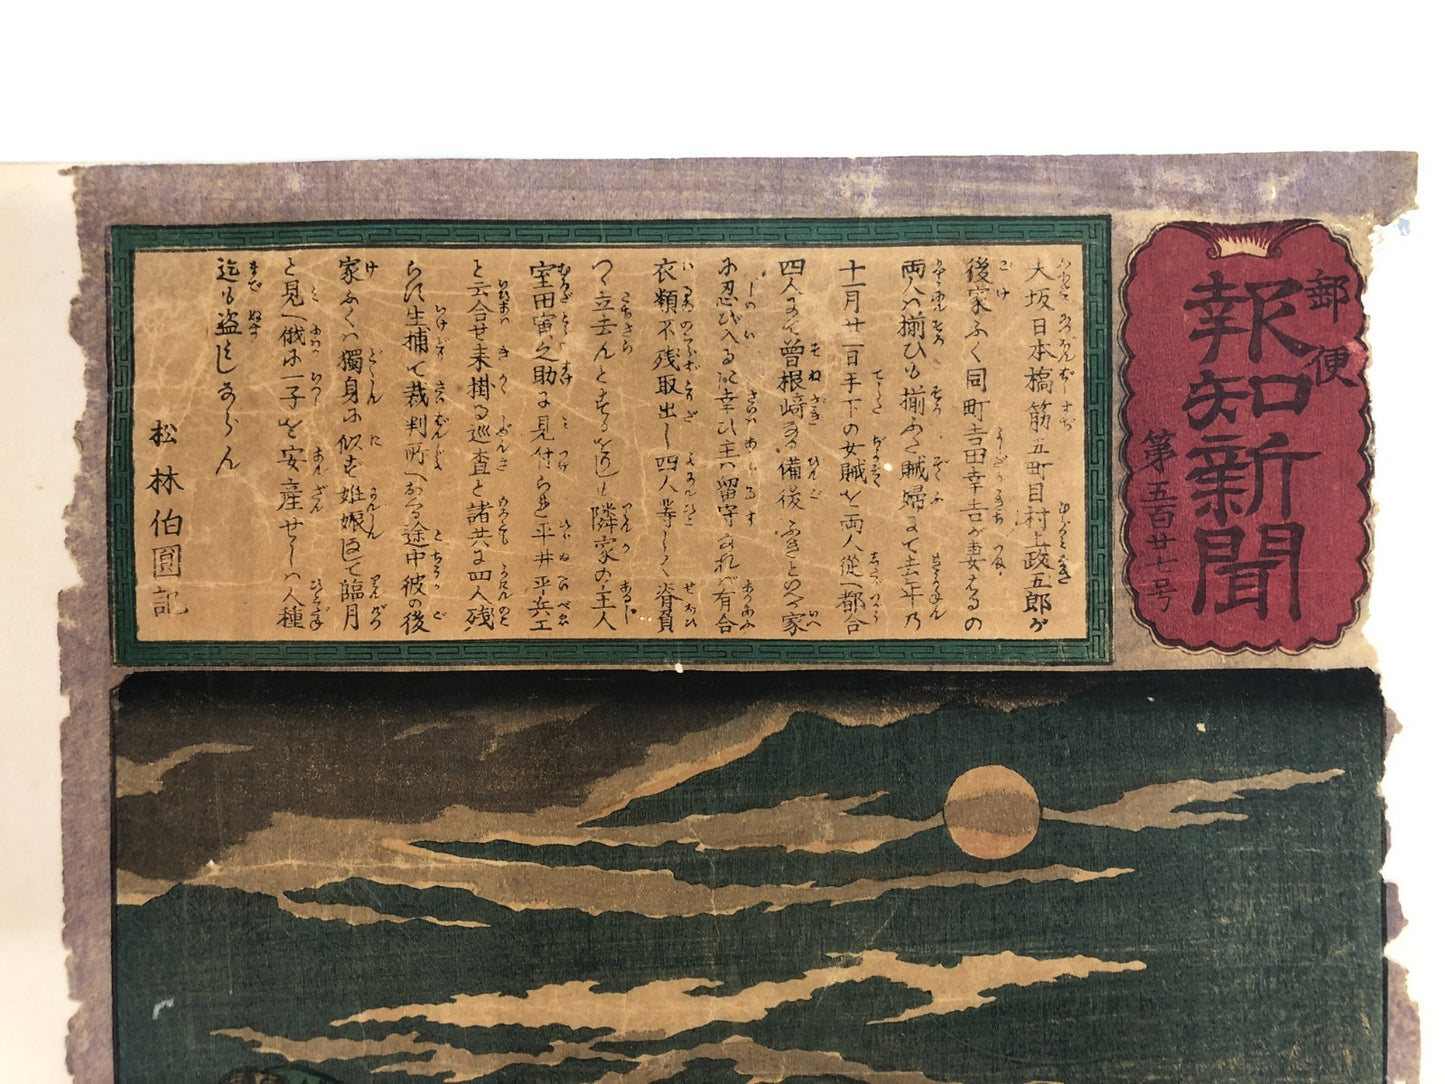 郵便
報知新聞
第五百廿七号
大坂日本橋筋五町目村上政五郎が
後家ふく同町吉田幸吉が妻はるの
両人ハ揃ひも揃ふた賊婦にて去年乃
十一月廿一日手下の女賊を両人従へ都合
四人にて曽根崎なる備後ふきといふ家
に忍び入るに幸ひ主ハ留守なれバ有合
衣類不残取出し四人等しく背負
つゝ立去んとする折しも隣家の主人
室田寅之助に見付られ平井平兵エ
と云合せ来掛る巡査と諸共に四人残
らず生捕て裁判所へおくる途中彼の後
家ふくハ獨身に似ず妊娠して臨月
と見へ俄に一子を安産せしハ人種
迄も盗みしならん
松林伯圓記